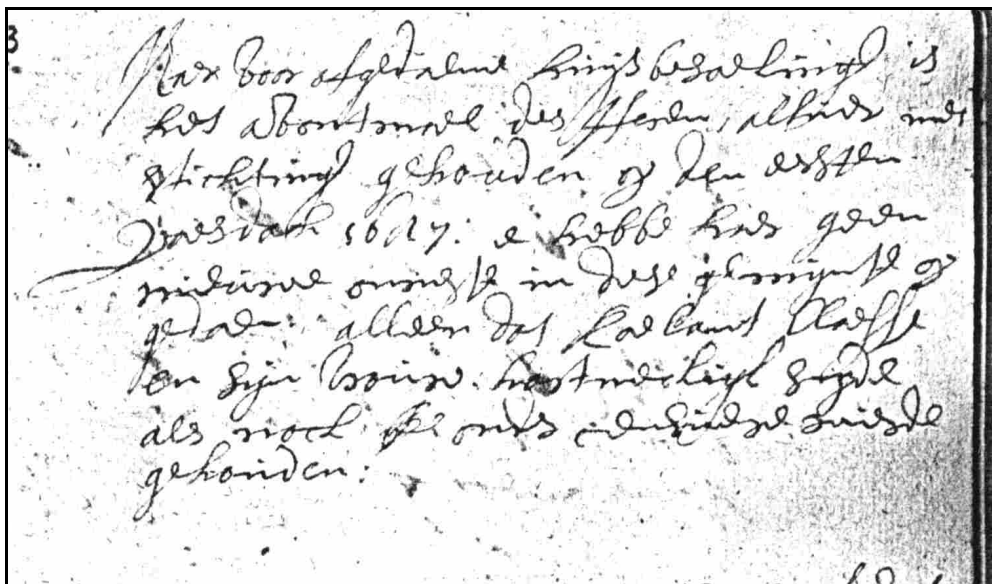 3
Naer voor afgedaene huijsbesoekinge is
het avontmael des Heren alhier met
stichtinge gehouden op den eersten
Paesdach 1647: e hebbe haer geen
nieuwe onruste in dese gemeynte op
gedaen: alleen dat Claesse
en sijn vrouwe hartneckigh sijnde
als noch onder censure wierde
gehouden: